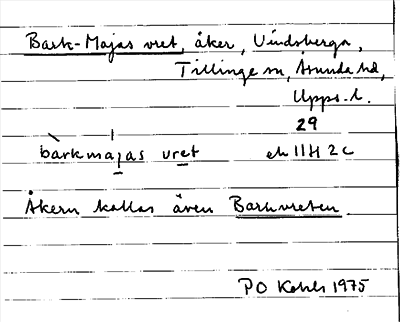 Bark-Majas vret, åker, Vindsberga,
Tillinge sn, Åsunda hd,
Upps. l.
29
barkmajas vret ek 11H 2c
Åkern kallas även Barkvreten
PO Kohls 1975